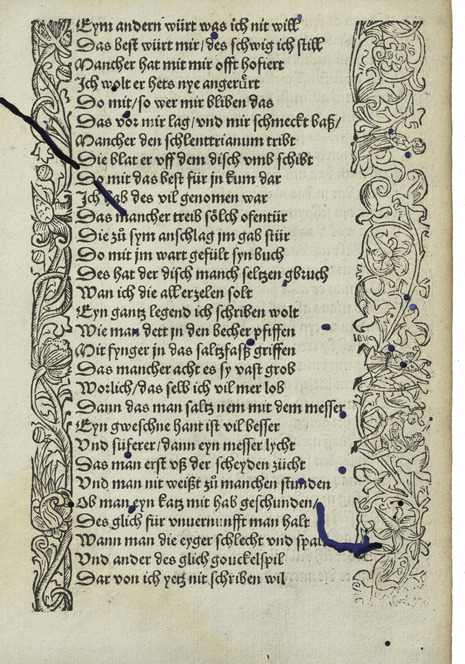 Eym andern würt was ich nit will
Das best würt mir/des schwig ich still
Mancher hat mit mir offt hofiert
Ich wolt er hets nye angerürt
Do mit/so wer mir bliben das
Das vor mir lag/vnd mir schmeckt baß/
Mancher den schlenttrianum tribt
Die blat er vff dem disch vmb schibt
Do mit das best für jn kum dar
Ich hab des vil genomen war
Das mancher treib sölch ofentür
Die zů sym anschlag jm gab stür
Do mit jm wart gefült syn buch
Des hat der disch manch seltzen gbruch
Wan ich die all erzelen solt
Eyn gantz legend ich schriben wolt
Wie man dett jn den becher pfiffen
Mit fynger jn das saltzfaß griffen
Das mancher acht es sy vast grob
Worlich/das selb ich vil mer lob
Dann das man saltz nem mit dem messer
Eyn gweschne hant ist vil besser
Vnd süferer/dann eyn messer lycht
Das man erst vß der scheyden zücht
Vnd man nit weißt zů manchen stunden
Ob man eyn katz mit hab geschunden/
Des glich für vnuernunfft man halt
Wann man die eyger schlecht vnd
Vnd ander des glich gouckelspil
Dar von ich yetz nit schriben wil